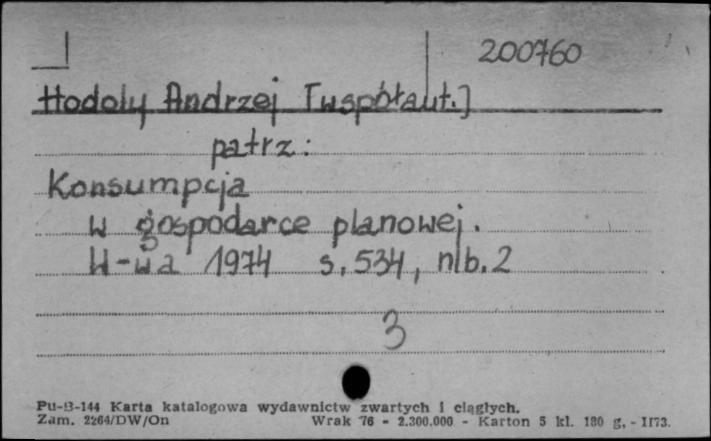 200760
Hodoly Andrzej [współaut.]
patrz:
Konsumpcja
w gospodarce planowej.
W-wa 1974 s. 534, nlb. 2
3
Pu-B-144 Karta katalogowa wydawnictw zwartych i ciągłych.
Zam. 2264/DW/On Wrak 76 - 2.300.000 - Karton 5 kl. 180 g. - II73.